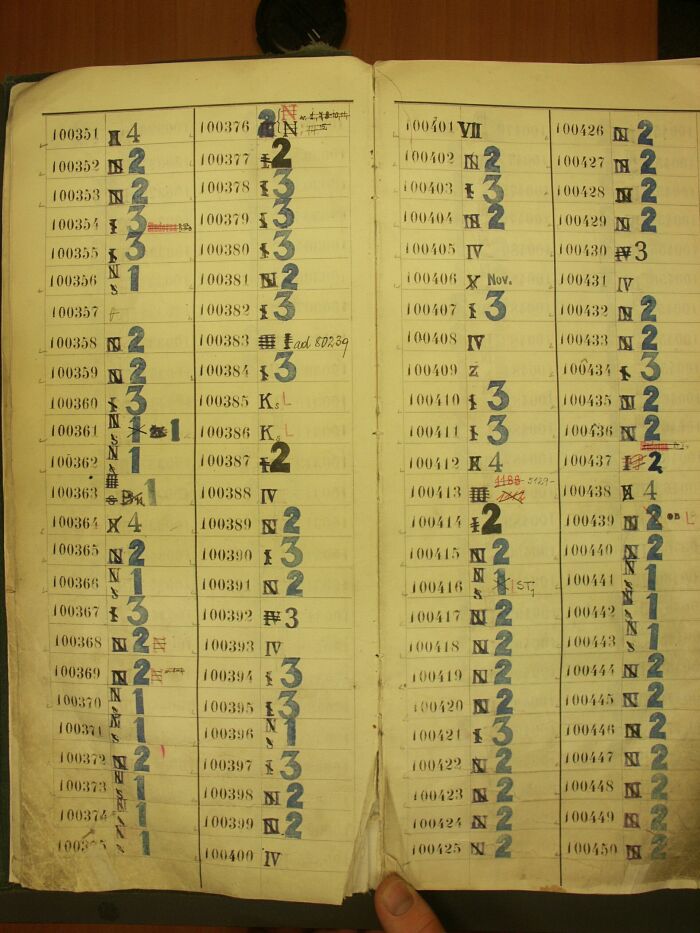 100351 4
100352 N 2
100353 N 2
100354 I 3
100355 I 3
100356 N s 1
100357
100358 N 2
100359 N 2
100360 I 3
100361 N s 1 1
100362 N s 1
100363 1
100364 X 4
100365 N 2
100366 N s 1
100367 I 3
100368 N 2 N
100369 N 2
100370 N s 1
100371 N s 1
100372 N 2
100373 N s 1
100374 N s 1
1003 s 1
100376 2 N N
100377 I 2
100378 I 3
100379 I 3
100380 I 3
100381 N 2
100382 I 3
100383 I ad 80239
100384 I 3
100385 Ks L
100386 Ks L
100387 I 2
100388 IV
100389 N 2
100390 I 3
100391 N 2
100392 IV 3
100393 IV
100394 I 3
100395 I 3
100396 N s 1
100397 I 3
100398 N 2
100399 N 2
100400 IV
100401 VII
100402 N 2
100403 I 3
100404 N 2
100405 IV
100406 X Nov.
100407 I 3
100408 IV
100409 Z
100410 I 3
100411 I 3
100412 4
100413 1188
100414 I 2
100415 N 2
100416 N s 1
100417 N 2
100418 N 2
100419 N 2
100420 N 2
100421 I 3
100422 N 2
100423 N 2
100424 N 2
100425 N 2
100426 N 2
100427 N 2
100428 N 2
100429 N 2
100430 IV 3
100431 IV
100432 N 2
100433 N 2
100434 I 3
100435 N 2
100436 N 2
100437 I 2
100438 4
100439 N 2 L
100440 N 2
100441 N s 1
100442 N s 1
100443 N s 1
100444 N 2
100445 N 2
100446 N 2
100447 N 2
100448 N 2
100449 N 2
100450 N 2